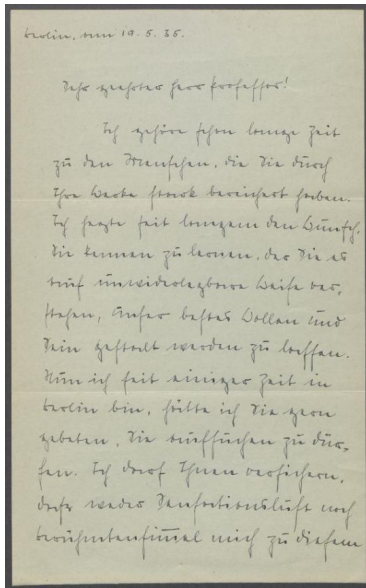 Berlin, den 19.5.35.
Sehr geehrter Herr Professor!
Ich gehöre schon lange Zeit
zu den Menschen, die Sie durch
Ihre Werke stark bereichert haben.
Ich hegte seit langem den Wunsch,
Sie kennen zu lernen, der Sie es
auf unwiderlegbare Weise ver-
stehen, unser bestes Wollen und
Sein gestalt werden zu lassen.
Nun ich seit einiger Zeit in
Berlin bin, hätte ich Sie gern
gebeten, Sie aufsuchen zu dür-
fen. Ich darf Ihnen versichern,
daß weder Sensationslust noch
Berühmtenfimmel mich zu diesem